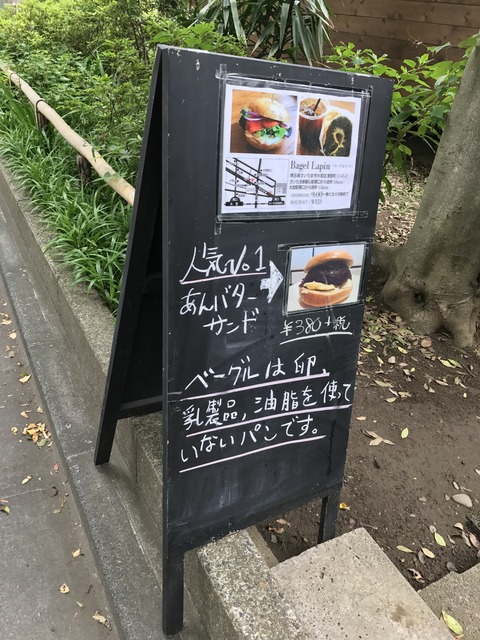 Bagel Lapin
人気No1
あんバター
サンド
¥380+税
ベーグルは卵、
乳製品、油脂を使って
いないパンです。